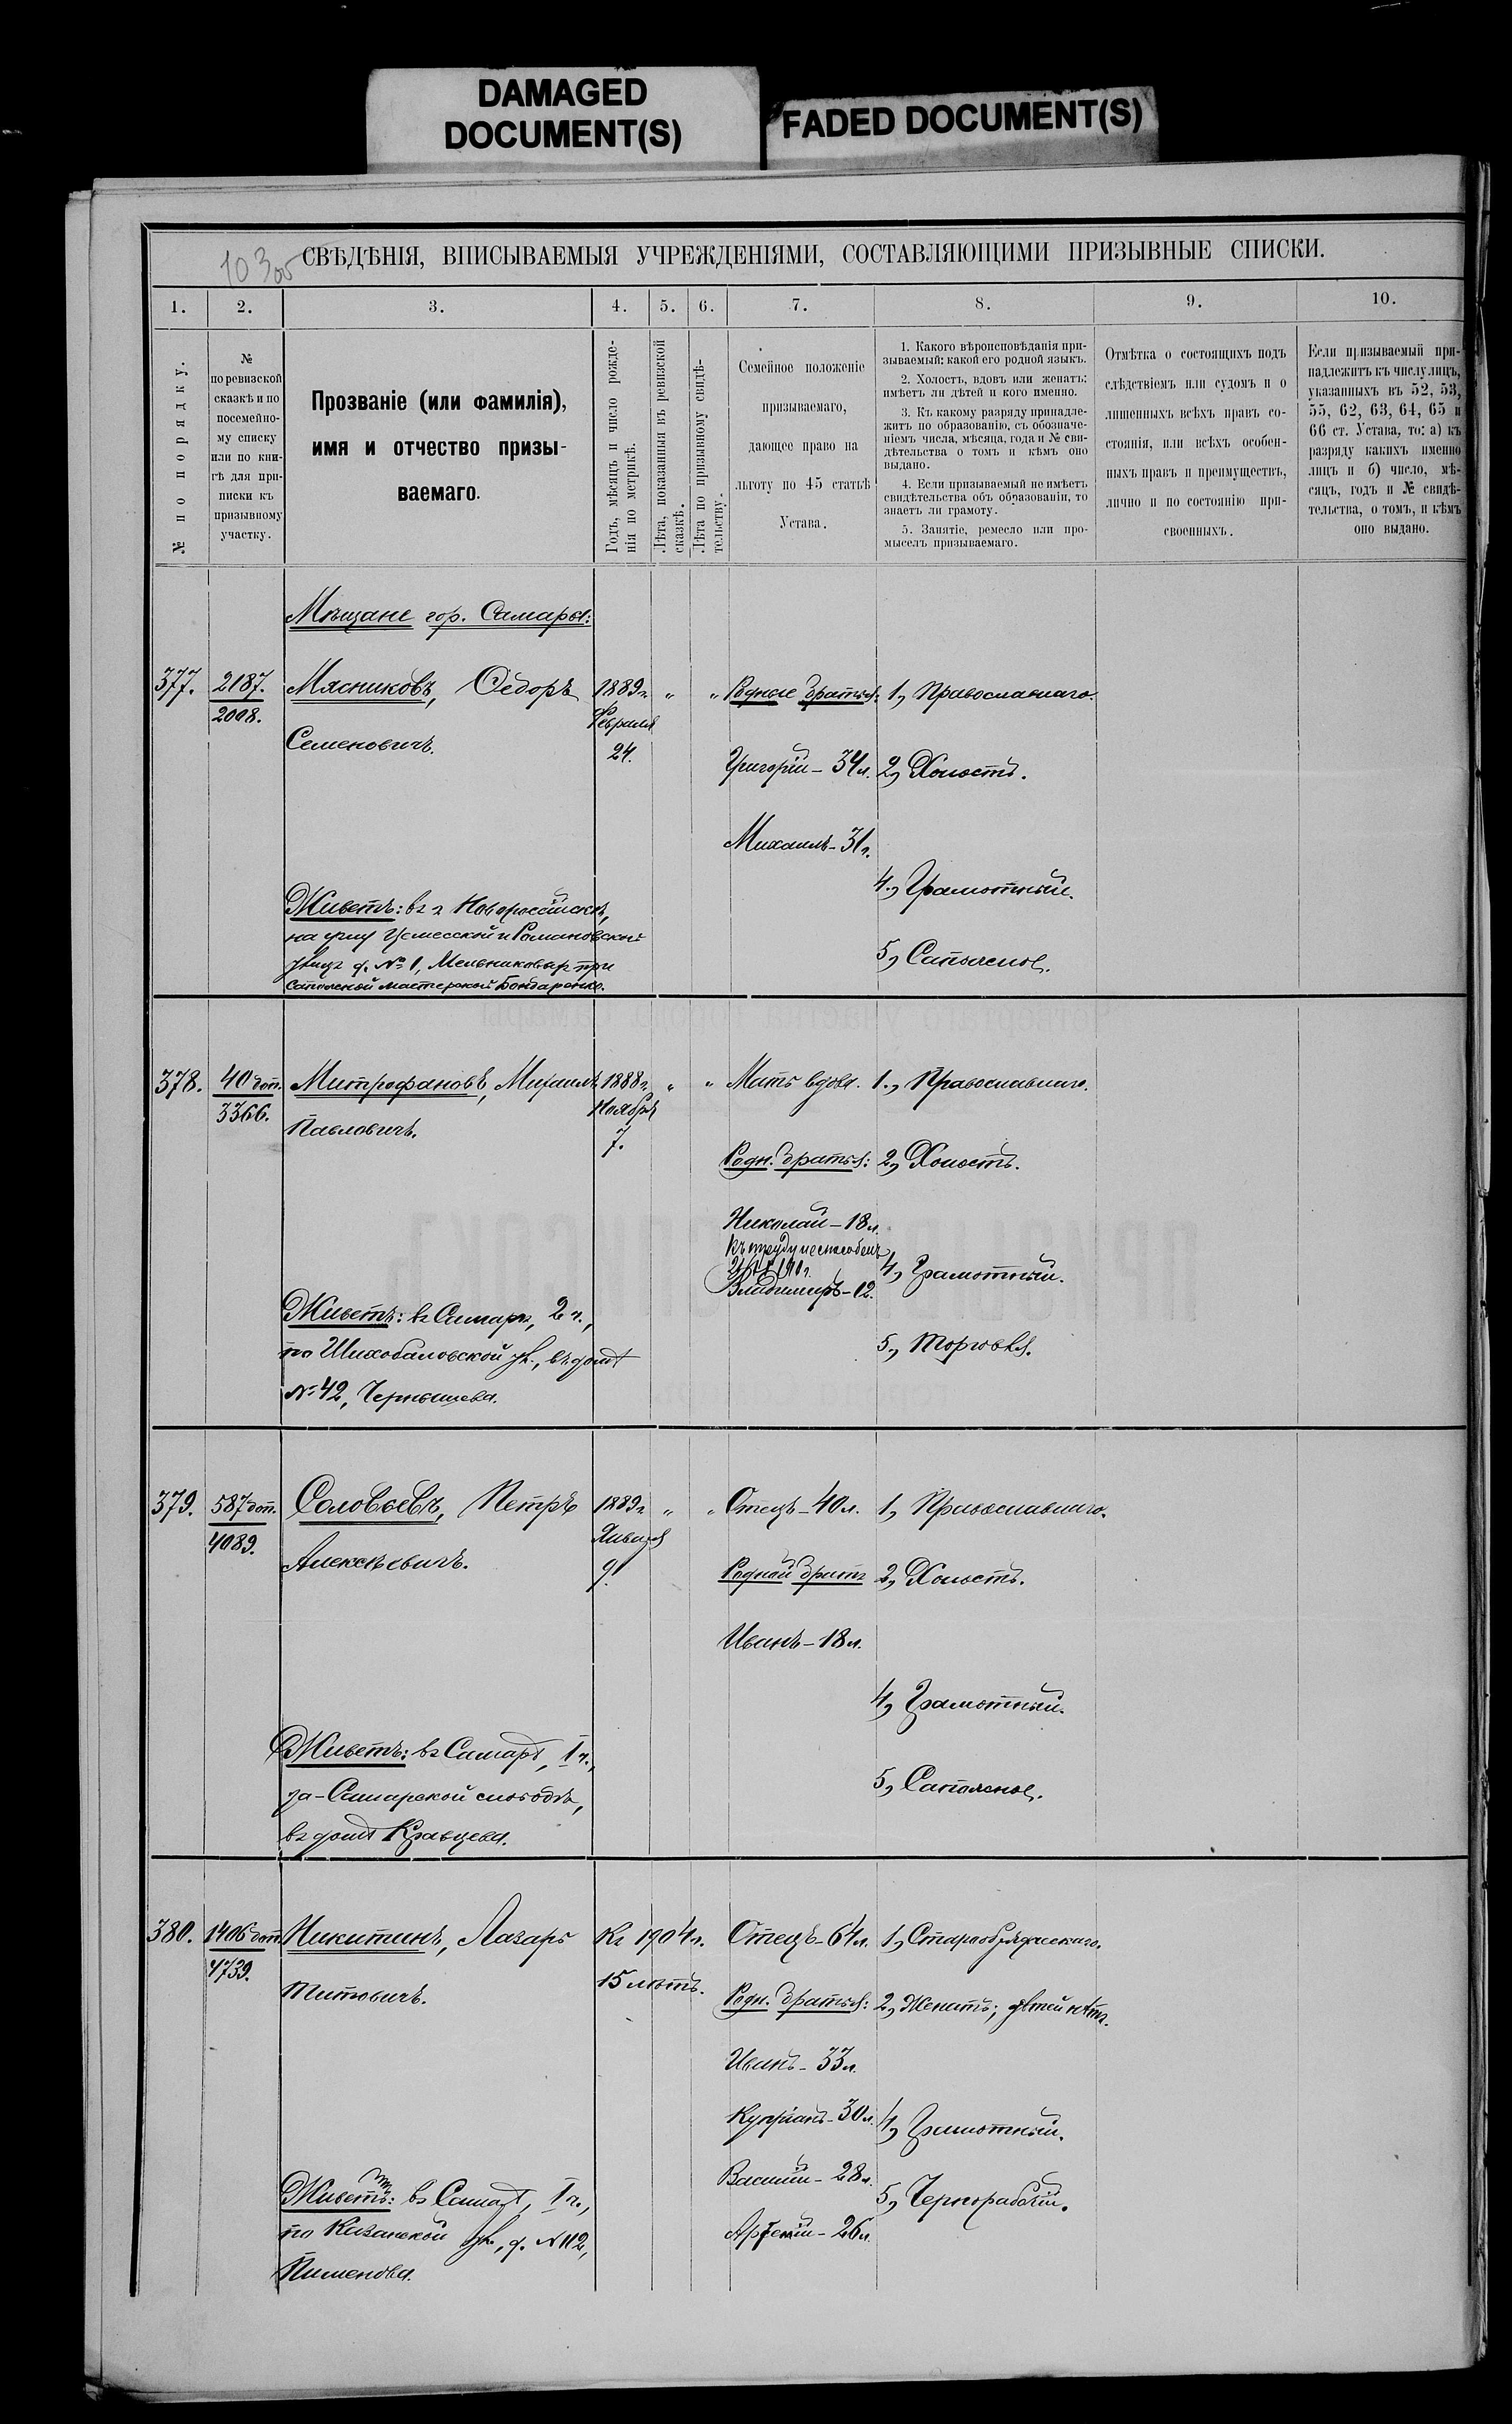 DAMAGED
DOCUMENT(S)
FADED DOCUMENT(S)
СВѢДѢНІЯ, ВПИСЫВАЕМЫЯ УЧРЕЖДЕНІЯМИ, СОСТАВЛЯЮЩИМИ ПРИЗЫВНЫЕ СПИСКИ.
1. 2. 3. 4. 5. 6. 7. 8. 9. 10.
№ по порядку.
№
по ревизской
сказкѣ и по
посемейно-
му списку
или по кни-
гѣ для при-
писки къ
призывному
участку.
Прозваніе (или фамилія),
имя и отчество призы-
ваемаго.
Годъ, мѣсяцъ и число рожде-
нія по метрикѣ.
Лѣта, показанныя въ ревизской
сказкѣ.
Лѣта по призывному свидѣ-
тельству.
Семейное положеніе
призываемаго,
дающее право на
льготу по 45 статьѣ
Устава.
1. Какого вѣроисповѣданія при-
зываемый: какой его родной языкъ.
2. Холостъ, вдовъ или женатъ:
имѣетъ ли дѣтей и кого именно.
3. Къ какому разряду принадле-
житъ по образованію, съ обозначе-
ніемъ числа, мѣсяца, года и № сви-
дѣтельства о томъ и кѣмъ оно
выдано.
4. Если призываемый не имѣетъ
свидѣтельства объ образованіи, то
знаетъ ли грамоту.
5. Занятіе, ремесло или про-
мыселъ призываемаго.
Отмѣтка о состоящихъ подъ
слѣдствіемъ или судомъ и о
лишенныхъ всѣхъ правъ со-
стоянія, или всѣхъ особен-
ныхъ правъ и преимуществъ,
лично и по состоянію при-
своенныхъ.
Если призываемый при-
надлежитъ къ числу лицъ,
указанныхъ въ 52, 53,
55, 62, 63, 64, 65 и
66 ст. Устава, то: а) къ
разряду какихъ именно
лицъ и б) число, мѣ-
сяцъ, годъ и № свидѣ-
тельства, о томъ, и кѣмъ
оно выдано.
Мѣщане гор. Самары:
377.
2187.
2008.
Мясниковъ, Ѳедоръ
Семеновичъ.
Живетъ: въ г Новороссійскѣ,
на углу Цемесской и Романовской
улицъ д. № 1, Мельникова, при
сапожной мастерской Бондаренко.
1889 г.
Февраля
24.
" "
Родные братья:
Григорій - 34 л.
Михаилъ - 31 г.
1, Православнаго.
2, Холостъ.
4., Грамотный.
5, Сапожникъ.
378.
40 доп.
3366.
Митрофановъ, Михаилъ
Павловичъ.
Живетъ: въ Самарѣ, 2 ч.,
по Шихобаловской ул., въ домѣ
№ 42, Чернышева.
1888 г.
Ноября
7.
" "
Мать вдова.
Родн. братья:
Николай - 18 л.
къ труду неспособенъ
Владимиръ - 12.
1., Православнаго.
2, Холостъ.
4, Грамотный.
5., Торговля.
379.
587 доп.
4089.
Соловьевъ, Петръ
Алексѣевичъ.
Живетъ: въ Самарѣ, I ч.,
за-Самарской слободѣ,
въ домѣ Кравцева.
1889 г.
Января
9.
" "
Отецъ - 40 л.
Родной братъ
Иванъ - 18 л.
1, Православнаго.
2, Холостъ.
4, Грамотный.
5, Сапожникъ.
380.
1406 доп.
4739.
Никитинъ, Лазарь
Титовичъ.
Живетъ: въ Самарѣ, I ч.,
по Казанской ул., д. № 112,
Пименова.
Къ 1904 г.
15 лѣтъ.
Отецъ - 64 л.
Родн. братья:
Иванъ - 33 л.
Купріанъ - 30 л.
Василій - 28 л.
Артемій - 26 л.
1, Старообрядческаго.
2, Женатъ; дѣтей нѣтъ.
4, Грамотный.
5, Чернорабочій.